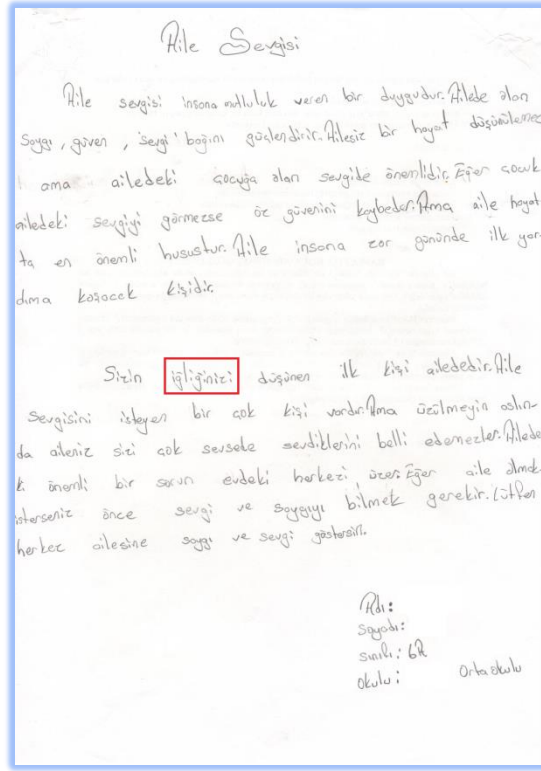 Aile Sevgisi
Aile sevgisi insana mutluluk veren bir duygudur. Ailede olan
Saygı, güven, sevgi bağını güçlendirir. Ailesiz bir hayat düşünülemez
ama ailedeki çocuğa olan sevgide önemlidir. Eğer çocuk
ailedeki sevgiyi görmezse öz güvenini kaybeder. Ama aile hayat
ta en önemli husustur. Aile insana zor gününde ilk yar
dıma koşacak kişidir.
Sizin iğliğinizi düşünen ilk kişi ailededir. Aile
Sevgisini isteyen bir çok kişi vardır. Ama üzülmeyin aslın-
da aileniz sizi çok sevsede sevdiklerini belli edemezler. Ailede
ki önemli bir sorun evdeki herkezi üzer. Eğer aile olmak
isterseniz önce sevgi ve saygıyı bilmek gerekir. Lütfen
herkez ailesine saygı ve sevgi göstersin.
Adı:
Soyadı:
Sınıfı: 6A
Okulu: Ortaokulu